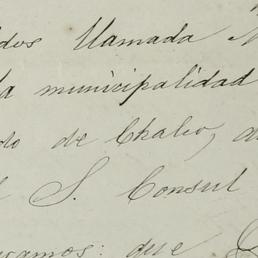 dos llamada
la municipalidad
do de Chalco,
S. Consul
camos: que